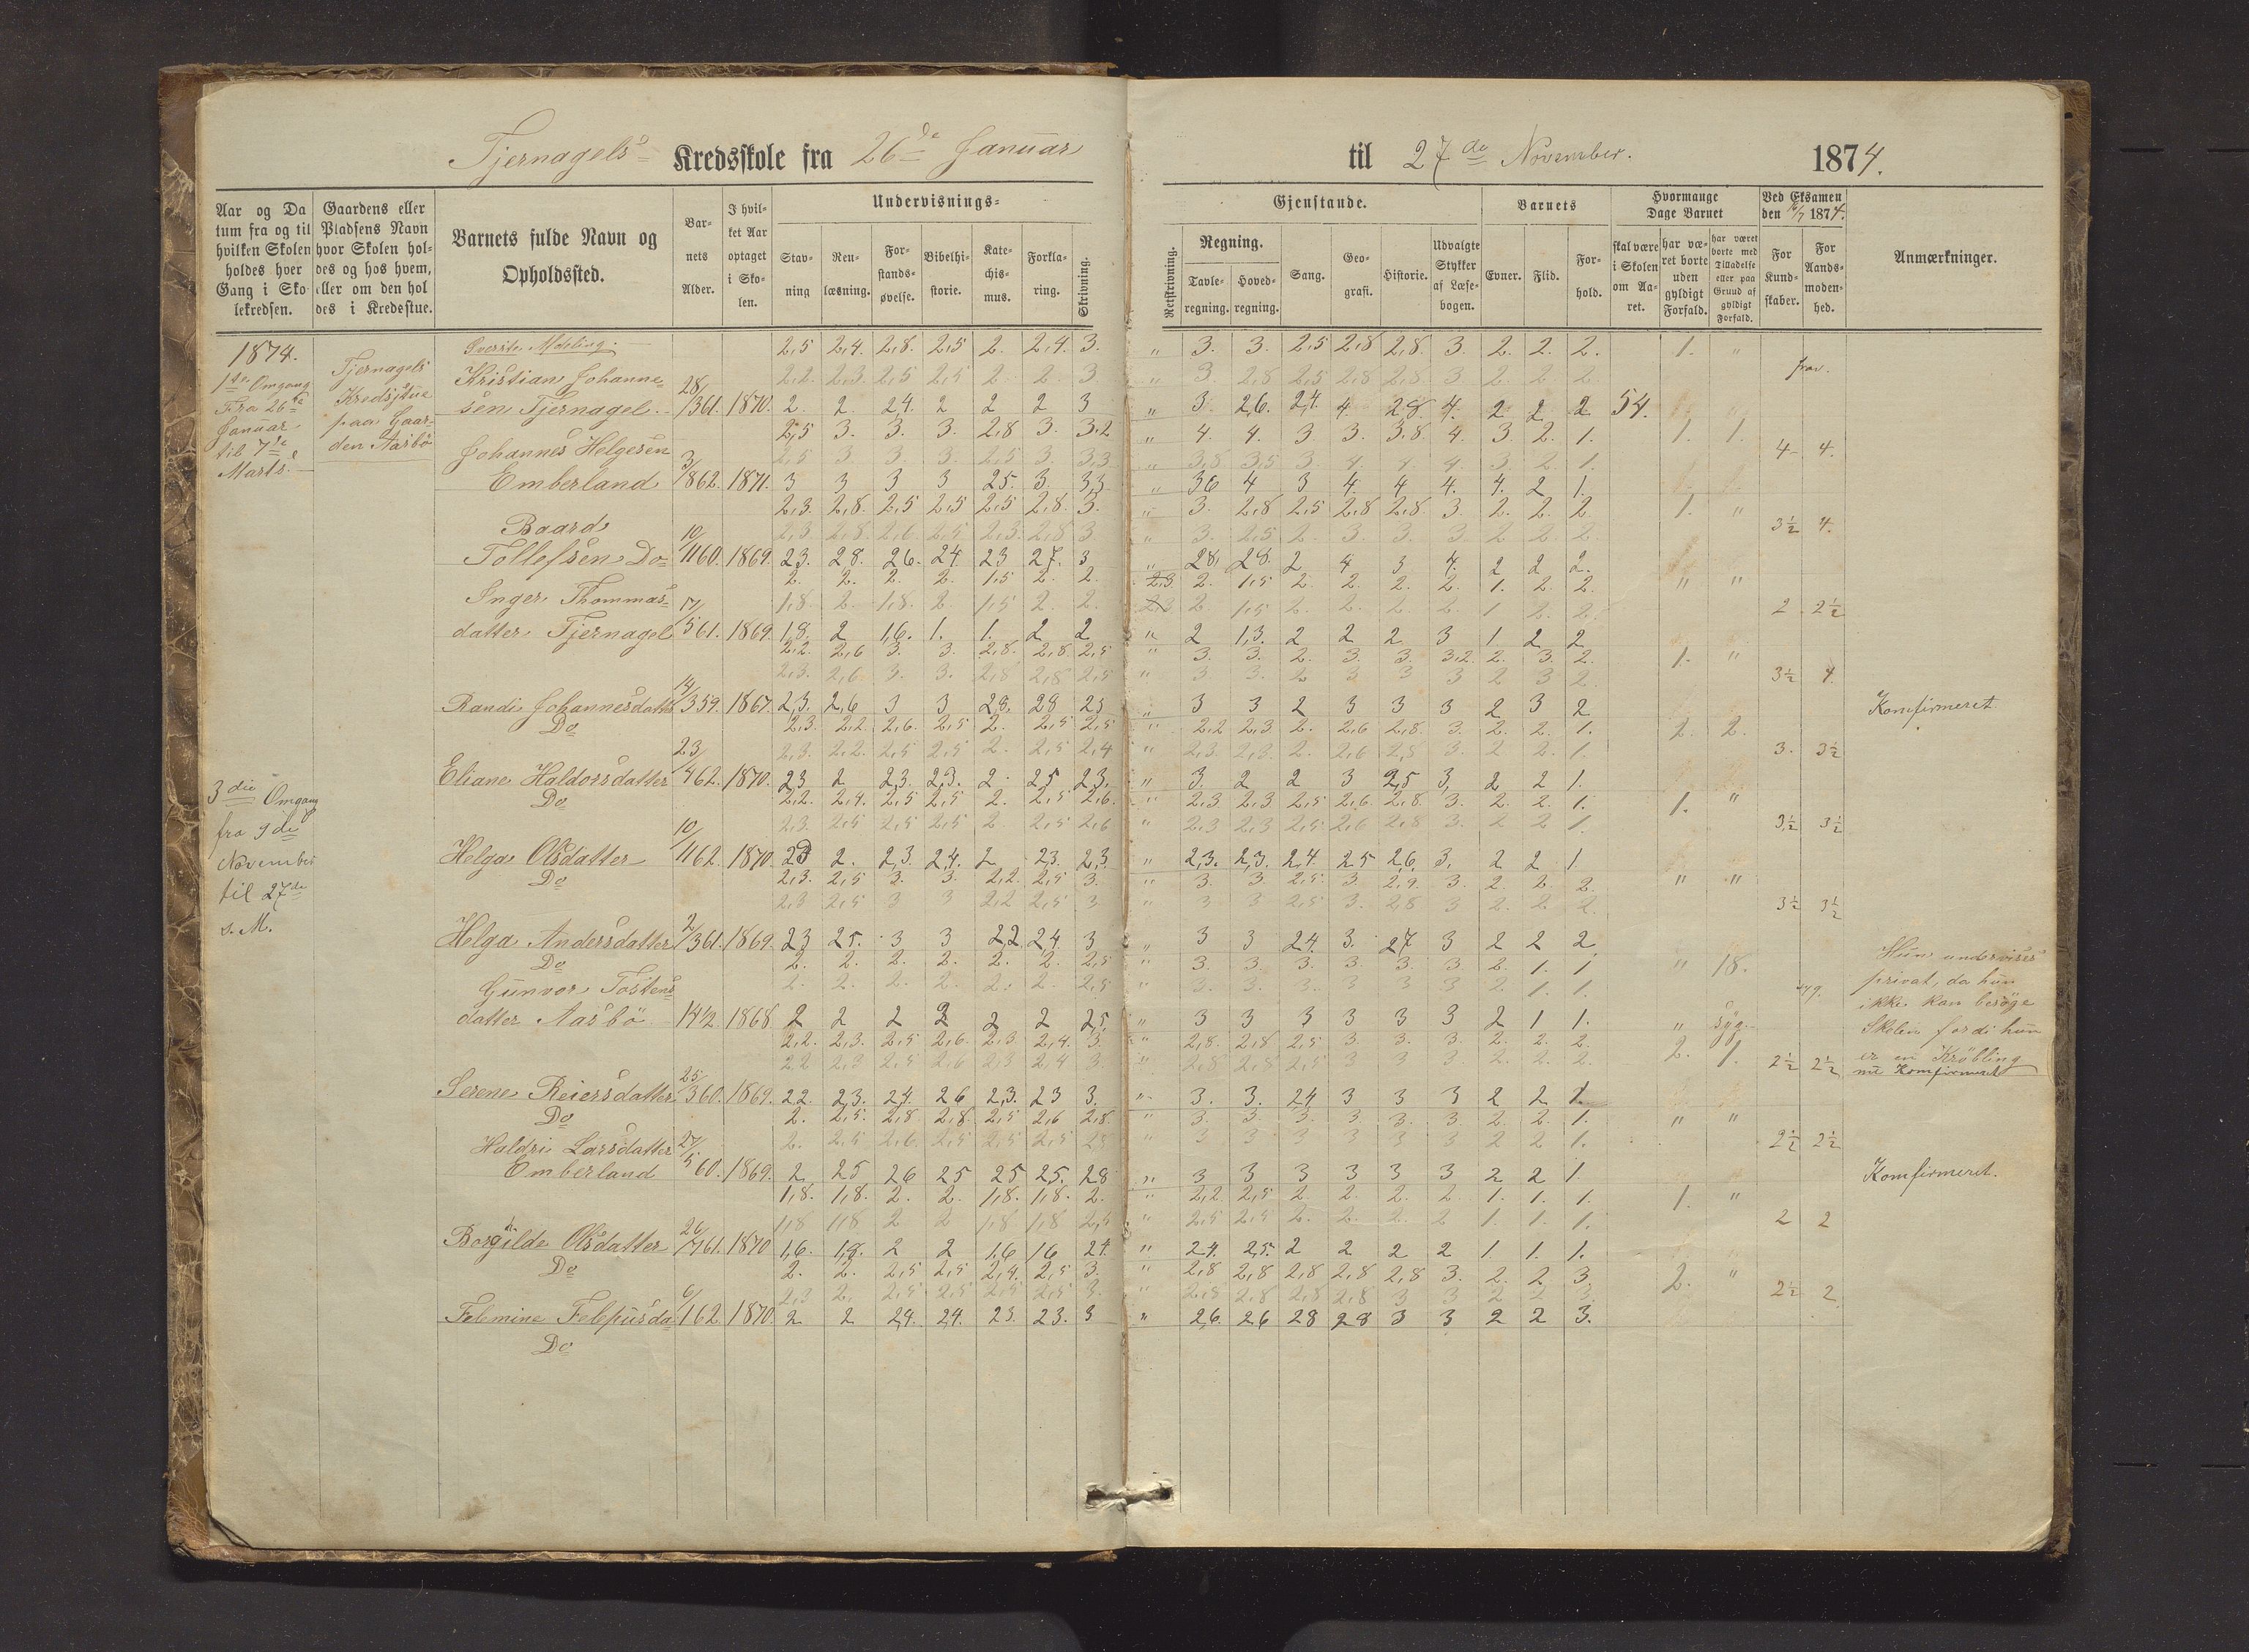 Tjernagels Kredsskole fra 26de Januar til 27de November. 1874.
Aar og Da tum fra og til hvilken Skolen holdes hver Gang i Sko lekredsen.
Gaardens eller Pladsens Navn hvor Skolen hol- des og hos hvem, eller om den hol des i Kredsstue.
Barnets fulde Navn og Opholdssted.
Bar- nets Alder.
I hvil- ket Aar optaget i Sko- len.
Undervisnings- Gjenstande.
Stav- ning
Ren- læsning.
For- stands- øvelse.
Bibelhi- storie.
Kate- chis- mus.
Forkla- ring.
Skrivning.
Retskrivning.
Regning.
Tavle- regning.
Hoved- regning.
Sang.
Geo- grafi.
Historie.
Udvalgte Stykker af Læse- bogen.
Barnets
Evner.
Flid.
For- hold.
Hvormange Dage Barnet
skal være i Skolen om Aa- ret.
har væ- ret borte uden gyldigt Forfald.
har været borte med Tilladelse eller paa Grund af gyldigt Forfald.
Ved Eksamen den 16/7 1874.
For Kund- skaber.
For Aands- moden- hed.
Anmærkninger.
1874.
1ste Omgang
Fra 26de
Januar
til 7de
Marts.
Tjernagels
Kredsstue
paa Gaar-
den Aasbø
3die Omgang
fra 9de
November
til 27de
s. M.
2,5 2,4. 2,8. 2,5 2. 2,4. 3. " 3. 3. 2,5 2,8 2,8. 3. 2. 2. 2. 1. "
Kristian Johanne-
2,2. 2,3. 2,5 2,5 2. 2. 3 " 3 2,8 2,5 2,8 2,8. 3. 2. 2. 2. frav.
sen Tjernagel. 28/361. 1870. 2. 2. 24. 2 2 2 3 " 3. 26. 24. 4. 28. 4. 2 2 2 54.
2,5 3. 3. 3. 2,8 3. 3,2 " 4. 4. 3 3. 3,8. 4. 3. 2. 1. 1. 1.
Johannes Helgesen
2,5 3 3. 3. 2,5 3. 3,3 " 3,8 3,5 3. 4. 4. 4. 3. 2. 1. 4 4.
Emberland 3/862. 1871. 3 3 3 3 25. 3. 33 " 36 4 3 4. 4 4. 4. 2 1.
2,3. 2,8. 2,5 2,5 2,5 2,8. 3. " 3. 2,8 2,5 2,8 2,8. 3. 2. 2. 2. 1. "
Baard
2,3. 2,8. 2,6. 2,5 2,3. 2,8 3 " 3. 2,5 2. 3. 3. 3. 2. 2. 2. 3½ 4.
Tollefsen Do 10/1160. 1869. 23. 28. 26. 24. 23 27. 3 " 28. 28. 2 4 3 4. 2 2 2.
2. 2. 2. 2. 1,5 2. 2. 2,3. 2. 1,5 2. 2. 2. 2. 1. 2. 2. " "
Inger Thommas-
1,8. 2. 1,8. 2. 1,5 2. 2. 2 1,5 2. 2. 2. 2. 1 2. 2. 2 2½
datter Tjernagel 17/561. 1869. 1,8. 2 1,6. 1. 1. 2 2 " 2 1,3. 2 2 2 3 1. 2 2
2,2. 2,6 3. 3. 2,8. 2,8. 2,5 " 3. 3. 2. 3. 3. 3,2. 2. 3. 2. 1. "
2,3. 2,6. 3. 3. 2,8 2,8 2,5 " 3 3. 2 3 3 3 2 3 2 3½ 4.
Randi Johannesdatter 14/359. 1867. 2,3. 2,6 3 3 28. 28 25 " 3 3 2 3 3 3 2 3 2 Komfirmeret
Do 2,3. 2,2. 2,6. 2,5 2. 2,5 2,5 " 2,2 2,3 2. 2,6 2,8. 3. 2. 2. 1. 2. 2.
2,3. 2,2. 2,5 2,5 2. 2,5 2,4 " 2,3 2,3 2. 2,6 2,5 3. 2 2. 1. 3. 3½
Eliane Haldorsdatter 23/462. 1870. 23 2 2,3. 2,3. 2. 25 23. " 3. 2 2 3 2,5 3, 2 2 1.
Do 2,2. 2,4. 2,5 2,5 2. 2,5 2,6. " 2,3 2,3 2,5 2,6 2,8. 3. 2. 2. 1. 1. "
2,3. 2,5 2,5 2,5 2. 2,5 2,6 " 2,3 2,3 2,5 2,6 2,8 3. 2 2 1. 3½ 3½
Helga Olsdatter 10/1162. 1870. 23 2. 2,3. 24. 2 23. 2,3 " 2,3. 2,3. 2,4. 25 26 3. 2 2 1
Do 2,3. 2,5 3. 3. 2,2. 2,5 3. " 3. 3. 2,5. 3. 2,9. 3. 2. 2. 2. " "
2,3 2,5 3 3 2,2 2,5 3 " 3 3 2,5 3. 2,8 3 2. 2. 2. 3½ 3½
Helga Andersdatter 2/361. 1869. 23 25. 3 3 22 24. 3 " 3 3 24. 3. 27 3 2 2 2
Do 2. 2. 2. 2. 2. 2. 2,5 " 3. 3. 3. 3. 3. 3. 2. 1. 1. " 18. Hun undervises
Gunvor Tostens
2. 2. 2. 2. 2. 2. 2,5 " 3. 3. 3. 3 3 3 2. 1. 1. privat, da hun
ikke kan besøge
datter Aasbø 14½ 1868 2 2 2 2 2 2 2,5 " 3 3 3 3 3 3 2 1 1. " syg. Skolen fordi hun
2,2. 2,3. 2,5 2,6. 2,3. 2,4. 3. " 2,8. 2,8 2,5 3. 3. 3. 2. 2. 2. 2. 1.
2,2 2,3 2,5 2,6 2,3 2,4 3 " 2,8 2,8 2,5 3 3 3. 2. 2. 2. 2½ 2½ er en Krøbling
nu Komfirmeret
Serene Reiersdatter 25/360. 1869. 22. 23. 24. 26 2,3. 23 3. " 3. 3. 24 3 3 3 2 2 1.
Do 2. 2,5. 2,8. 2,8. 2,5 2,6 2,8. " 3. 3. 3. 3. 3. 3. 2. 2. 1. " "
Haldri Larsdatter 2. 2,5 2,6. 2,5 2,5 2,5 2,5 " 3 3 3 3 3 3 2 2 1. 2½ 2½
Emberland 27/560. 1869. 2 25 26 25 25 25. 28 " 3 3 3 3 3 3 2 2 1 Komfirmeret.
1,8. 1,8. 2. 2. 1,8. 1,8. 2. " 2,2. 2,5 2. 2. 2. 2. 1. 1. 1. 1. "
1,8 1,8 2 2 1,8 1,8 2,5 " 2,5 2,5 2. 2. 2. 2 1. 1. 1. 2 2
Borgilde Olsdatter 26/761. 1870 1,6. 1,8. 2 2 1,6 16 24. " 24. 25. 2 2 2 2 1. 1. 1.
Do 2. 2. 2,5 2,5 2,4. 2,5 3. " 2,8 2,8 2,8 2,8 2,8 3. 2. 2 3. 2. "
2,3 2. 2,5 2,5 2,5 2,5 3. " 2,8 2,8 2,8 2,8 3 3 2 2 3. 2½ 2
Felemine Felepusda 6/162 1870. 2 2 24. 24. 23. 23. 3 " 26. 26 28 28 3 3 2 2 3.
Do